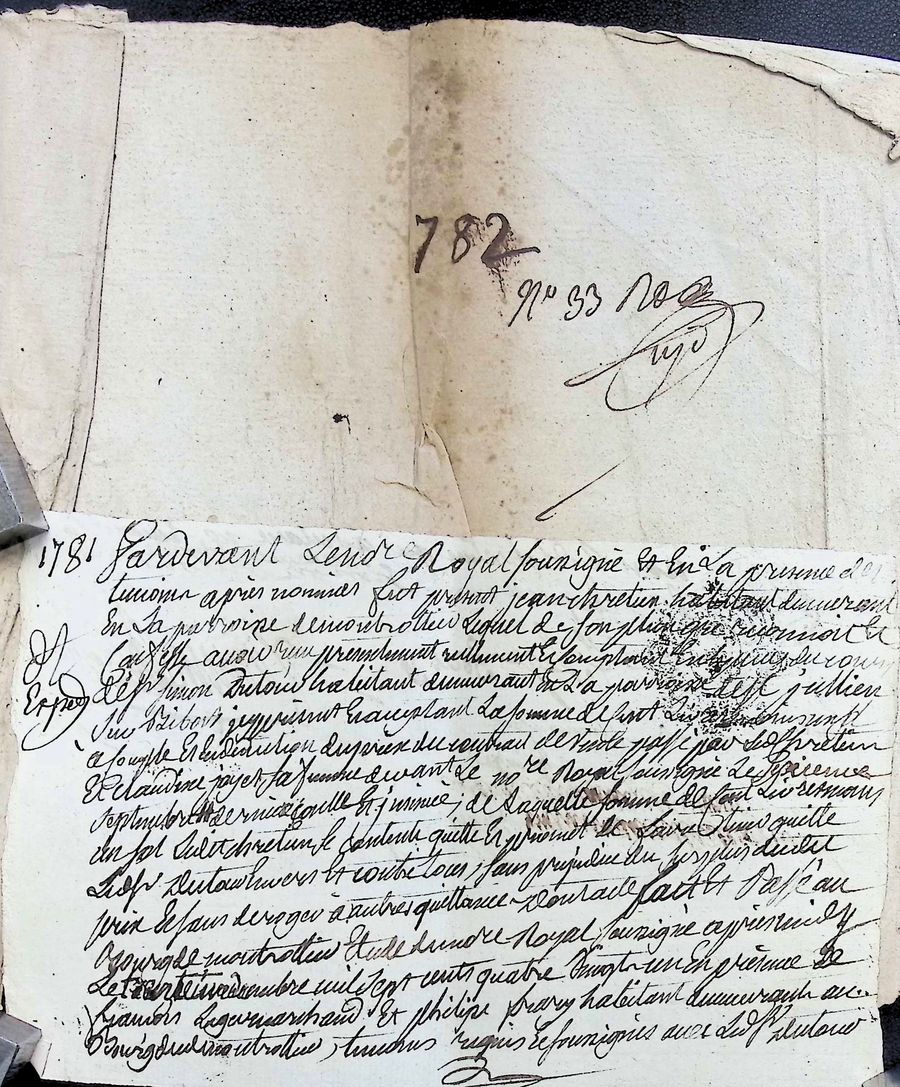 782
N° 33
1781 Pardevant Le no.re Royal Soussigné Et En La presence des
temoins après nommés fut present jean chretien habitant demeurant
En La parroisse de montrottier Lequel de son plein gré reconnoit Et
Confesse avoir reçu presentement reellement Et comptant En Especes du cours
Exped
de Sr Simon Dutour habitant demeurant En La parroisse de St jullien
Sur Bibost, jcy present Et acceptant La somme de Cent Livres
a compte Et En deduction du prix du contrait de vente passé par Led. chretien
Et claudine sa femme devant Le no.re Royal Soussigné Le
Septembre dernier Controllé Et jnsinué, de Laquelle somme de Cent Livres moins
un sol Ledit chretien Se contente quitte Et promet de faire tenir quitte
Led. Sr Dutour Envers Et contre tous, Sans prejudice du Surplus dudit
prix Et Sans deroger à autres quittances Dont acte fait Et Passé au
Bourg de montrottier Etude du no.re Royal Soussigné après midy
Le mil Sept cents quatre Vingt un En présence de
marchand Et philipe habitant demeurants au
Bourg dud. montrottier, temoins requis Et Soussignés avec Led. Sr Dutour